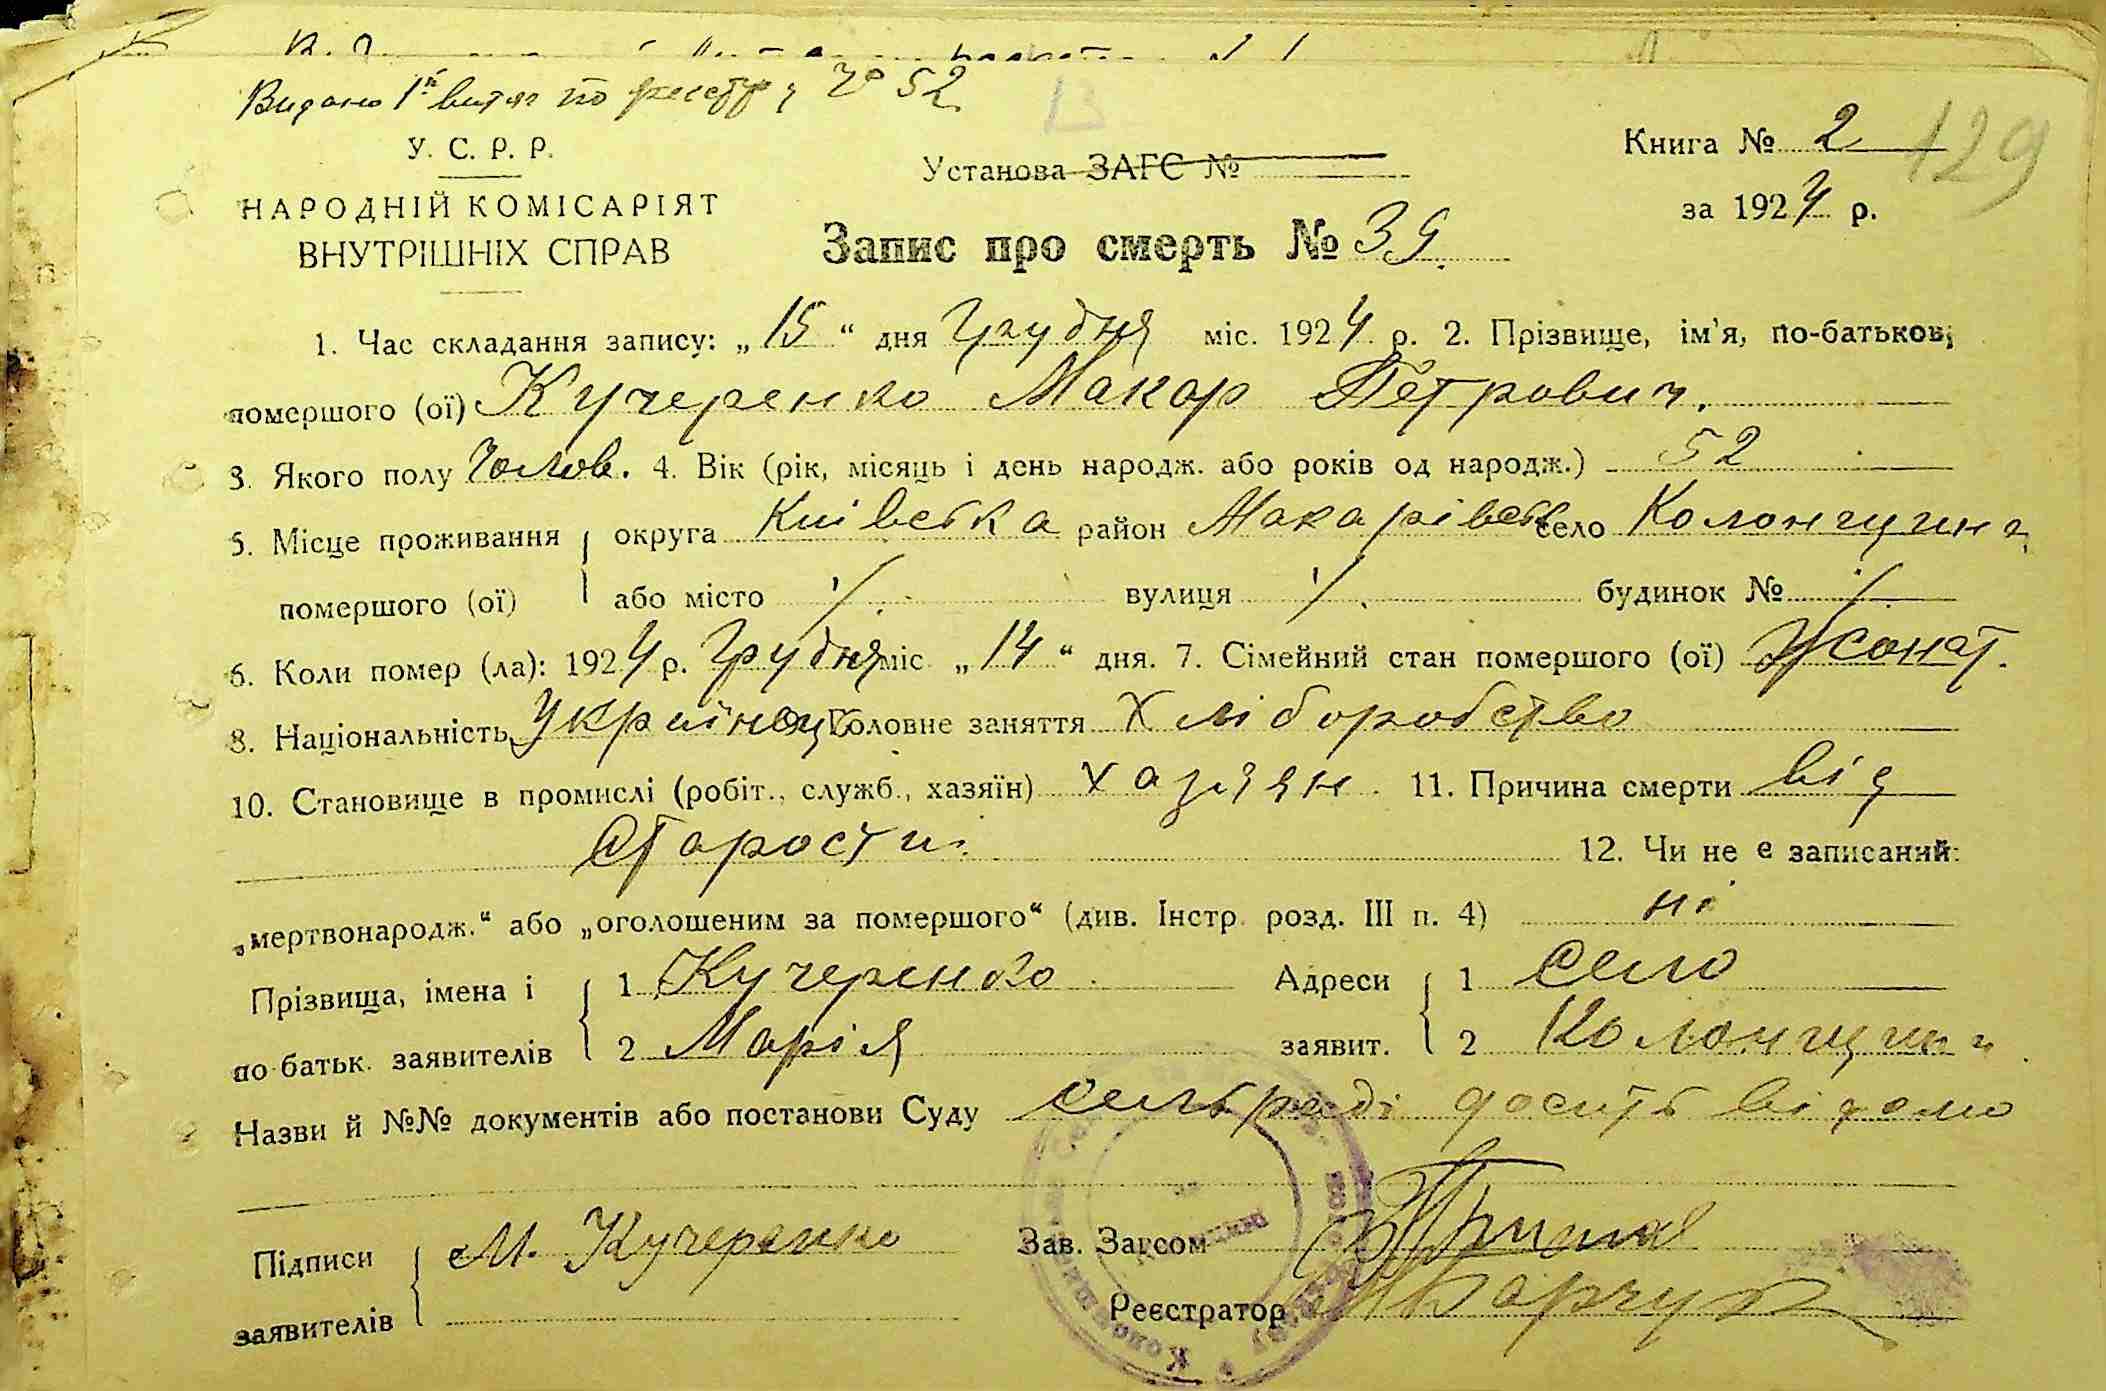 Видано 1й витяг по реєстру № 52
У. С. Р. Р.
НАРОДНІЙ КОМІСАРІЯТ
ВНУТРІШНІХ СПРАВ
Установа ЗАГС №
Книга № 2
129
за 1924 р.
Запис про смерть № 39.
1. Час складання запису: „15“ дня Грудня міс. 1924 р. 2. Прізвище, ім'я, по-батькові
помершого (ої) Кучеренко Макар Петрович.
3. Якого полу Чолов. 4. Вік (рік, місяць і день народж. або років од народж.) 52
5. Місце проживання округа Київська район Макарівськ село Колонщина
помершого (ої) або місто /. вулиця /. будинок № /.
6. Коли помер (ла): 1924 р. Грудня міс. „14“ дня. 7. Сімейний стан помершого (ої) Жонат.
8. Національність Українец Головне заняття Хліборобство
10. Становище в промислі (робіт., служб., хазяїн) хазяін. 11. Причина смерти від
старости. 12. Чи не є записаний:
„мертвонародж.“ або „оголошеним за помершого“ (див. Інстр. розд. III п. 4) ні
Прізвища, імена і 1 Кучеренко Адреси 1 село
по батьк. заявителів 2 Марія заявит. 2 Колонщина
Назви й №№ документів або постанови Суду сельраді досить відомо
Підписи М. Кучеренко Зав. Загсом
заявителів Реєстратор